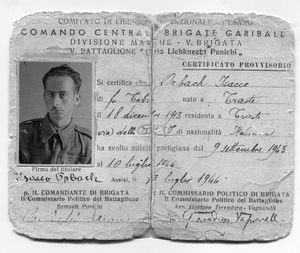 COMITATO DI LIBERAZIONE NAZIONALE PESARO
COMANDO CENTRALE BRIGATE GARIBALDI
DIVISIONE MARCHE - V. BRIGATA
V. BATTAGLIONE "Carlo Liebknecht Panichi"
CERTIFICATO PROVVISORIO
Si certifica che Orbach Isacco
di fu nato a Trieste
il 18 dicembre 1913 residente a Trieste
di nazionalità Italiana
ha svolto attività partigiana dal 9 settembre 1943
al 10 luglio 1944
Firma del titolare
Isacco Orbach
Assisi, luglio 1944
p. IL COMANDANTE DI BRIGATA
Il Commissario Politico del Battaglione
Samuele Panichi
IL COMMISSARIO POLITICO DI BRIGATA
Il Commissario Politico del Battaglione
Avv. Gustavo Terradura - Vagnarelli